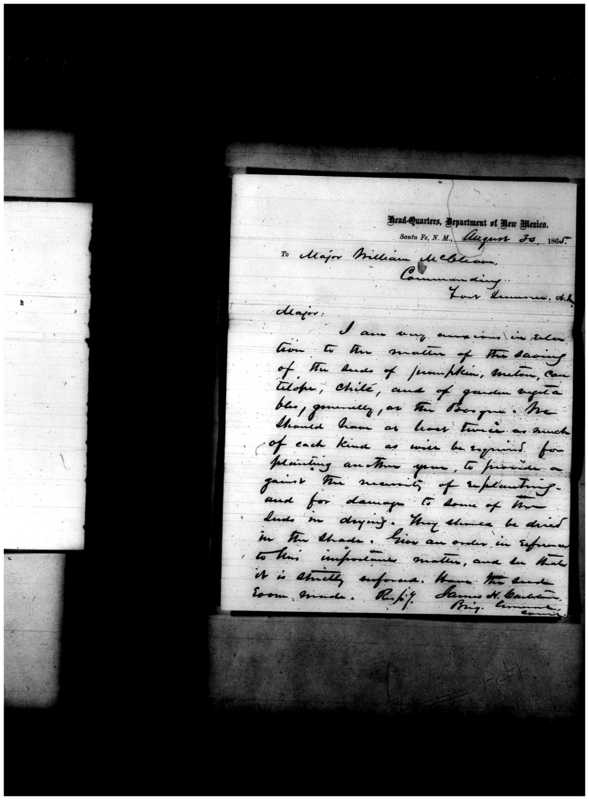 Head-Quarters, Department of New Mexico.
Santa Fe, N. M., August 30 1865.
To Major William McCleave.
Commanding.
Fort Sumner. N.M.
Major:
I am very anxious in rela
tion to the matter of the saving
of the seeds of pumpkin, melon, can
telope, chilé, and of garden vegeta
bles, generally, at the Bosque. We
should have at least twice as much
of each kind as will be required for
planting another year, to provide a
gainst the necessity of replanting-
and for damage to some of the
seeds in drying. They should be dried
in the shade. Give an order in reference
to this important matter, and see that
it is strictly enforced. Have the seed
room made. Resp'y. James H. Carleton
Brig. General
Comdg